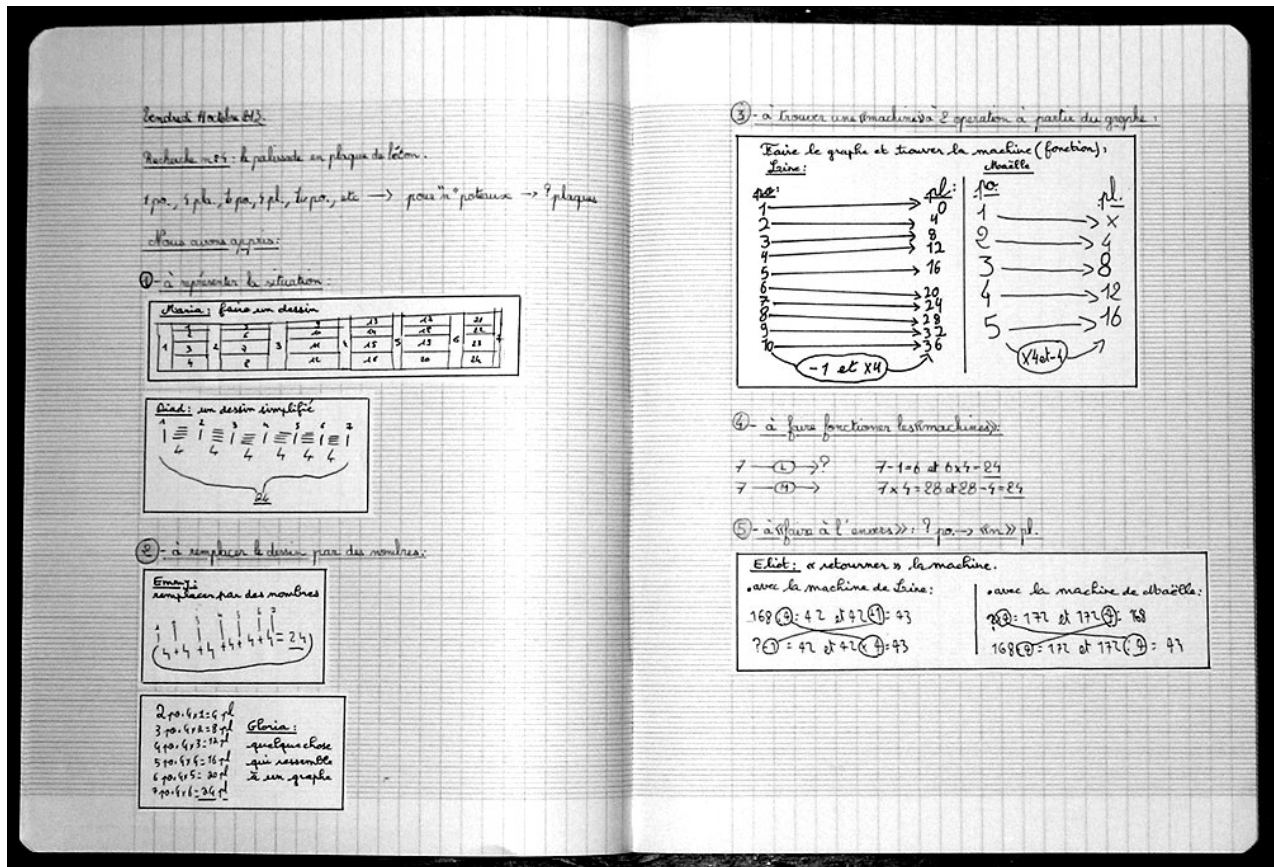 Vendredi 11 octobre 2013.
Recherche n°4 : la palissade en plaque de béton.
1 po., 4 pla., 1 po., 4 pl., 1 po., etc → pour "n" poteaux → ? plaques
Nous avons appris:
① - à représenter la situation:
Maria: faire un dessin
1 2 3 4 5 6
1 5 9 13 17 21
2 6 10 14 18 22
3 7 11 15 19 23
4 8 12 16 20 24
Diad: un dessin simplifié
1 2 3 4 5 6 7
4 4 4 4 4 4
24
② - à remplacer le dessin par des nombres:
Emmy:
remplacer par des nombres
1 2 3 4 5 6 7
4+4+4+4+4+4=24
2 po. 4x1=4 pl
3 po. 4x2=8 pl
4 po. 4x3=12 pl
5 po. 4x4=16 pl
6 po. 4x5=20 pl
7 po. 4x6=24 pl
Gloria:
quelque chose
qui ressemble
à un graphe
③ - à trouver une «machine» à 2 operation à partir du graphe:
Faire le graphe et trouver la machine (fonction):
po: pl:
1 → 0
2 → 4
3 → 8
4 → 12
5 → 16
6 → 20
7 → 24
8 → 28
9 → 32
10 → 36
-1 et x4
Maëlle
po. pl.
1 → x
2 → 4
3 → 8
4 → 12
5 → 16
x4et-4
④ - à faire fonctionner les «machines»:
7 — L → ? 7-1=6 et 6x4=24
7 — M → 7x4=28 et 28-4=24
⑤ - à «faire à l'envers»: ? po. → «n» pl.
Eliot: « retourner » la machine.
• avec la machine de
168 :4 = 42 et 42 +1 = 43
? -1 = 42 et 42 x 4 = 43
• avec la machine de Maëlle:
= 172 et 172 = 168
168 = 172 et 172 :4 = 43